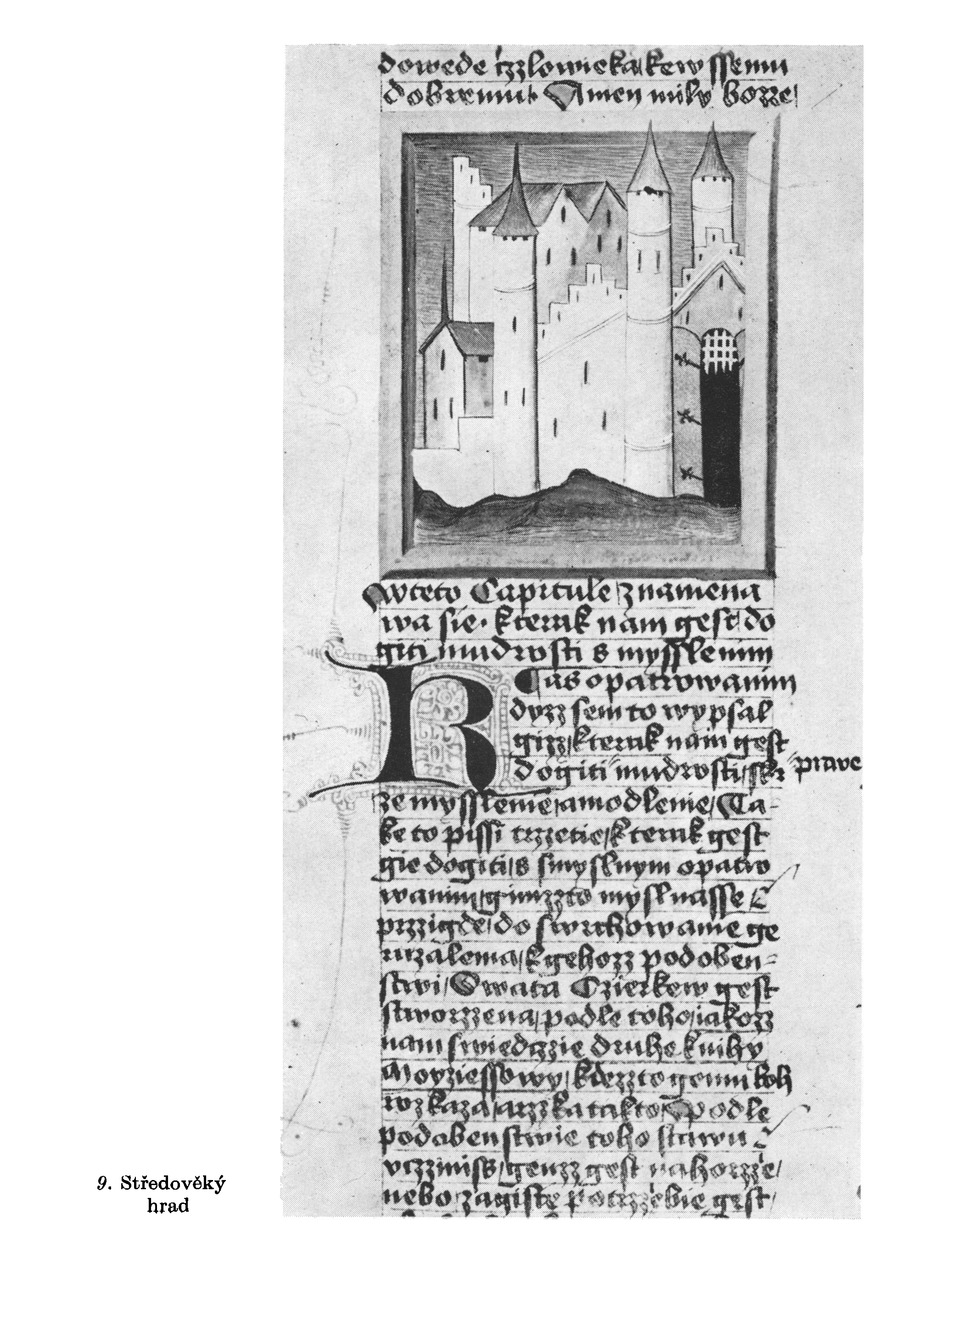 dowede czzlowieka kewssemu
dobremu Amen mily bozze
wteto Capitule znamena
wa sie kterak nam gest do
giti mudrosti s mysslenim
R
Cas opatrowanim
dyzz sem to wypsal
gizz kterak nam gest
dogiti mudrosti
prave
ze mysslenie a modlenie Ta
ke to pissi trzzetie kterak gest
gie dogiti s smyslnym opatro
wanim gimzzto mysl nasse
przzigde do swrchowane ge
ruzalema k gehozz podoben-
stwi Swata Czierkew gest
stworzzena podle toho iakozz
nam swiedczie druhe knihy
Moyziessowy kdezzto gemu boh
rozkaza arzzka takto Podle
podobenstwie toho stawu
vczzniss genzz gest na horzze
nebo zagiste potrzzebie gest
9. Středověký
hrad